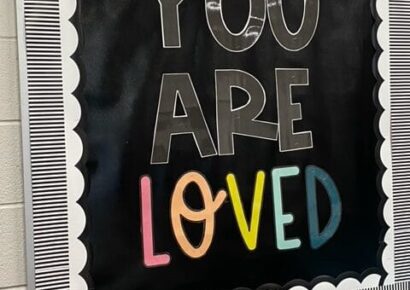 YOU
ARE
LOVED